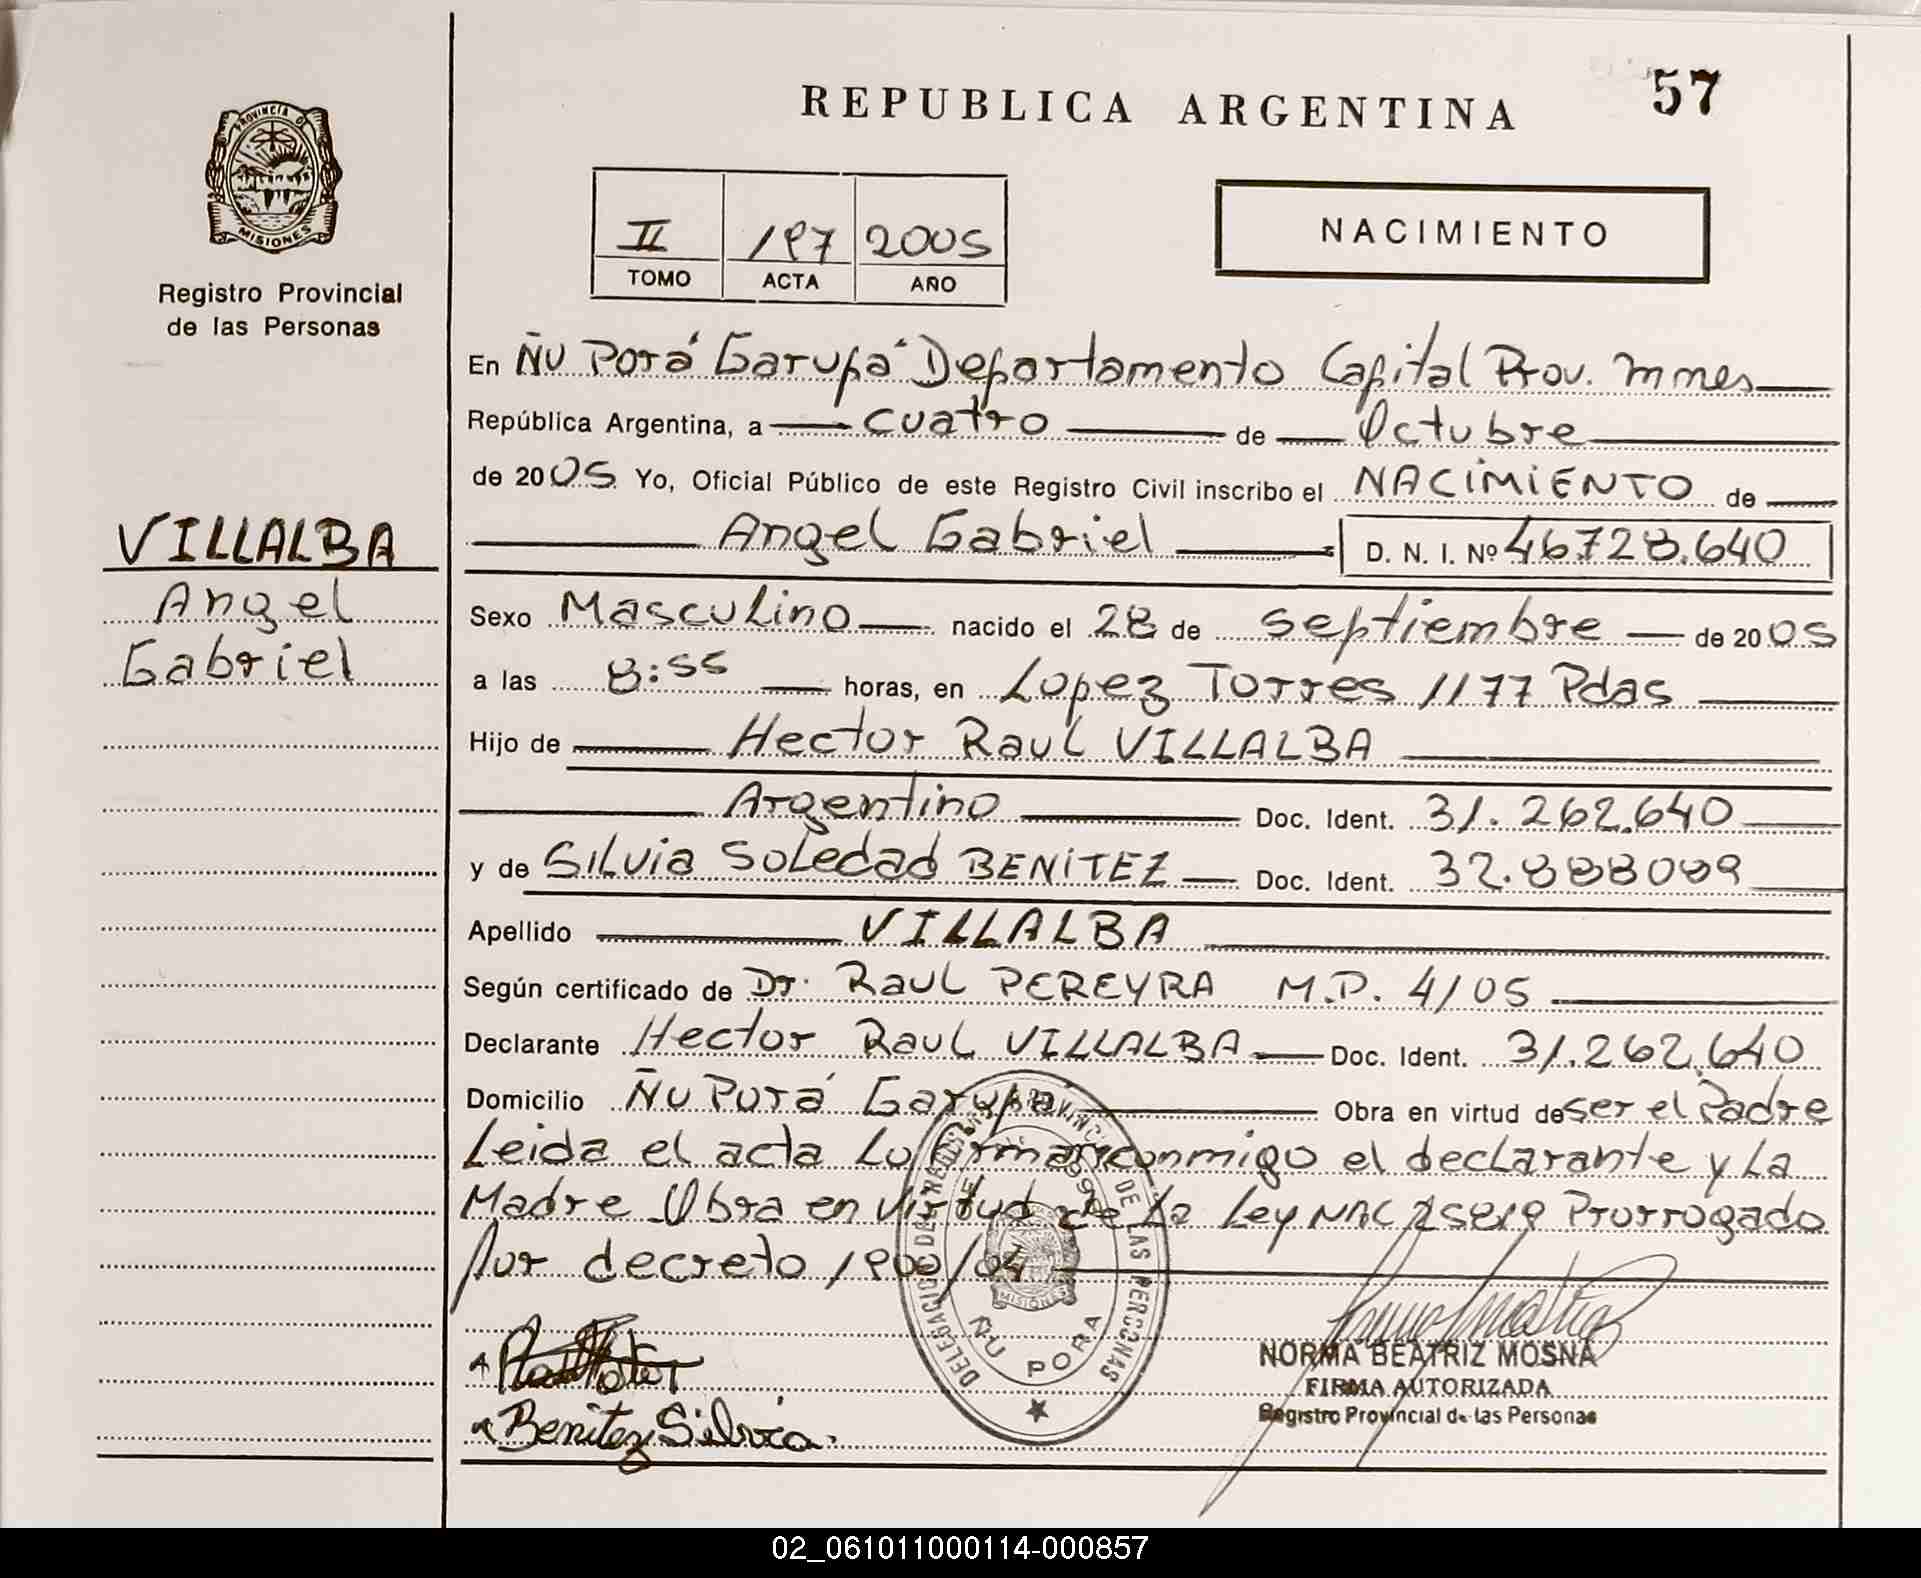 57
REPUBLICA ARGENTINA
PROVINCIA DE
MISIONES
Registro Provincial
de las Personas
II 197 2005
TOMO ACTA AÑO
NACIMIENTO
En Ñu Porá Garupá Departamento Capital Prov. Mnes
República Argentina, a cuatro de Octubre
de 2005 Yo, Oficial Público de este Registro Civil inscribo el NACIMIENTO de
Angel Gabriel D. N. I. Nº 46728.640
VILLALBA
Angel
Gabriel
Sexo Masculino nacido el 28 de septiembre de 2005
a las 8:55 horas, en Lopez Torres 1177 Pdas
Hijo de Hector Raul VILLALBA
Argentino Doc. Ident. 31.262.640
y de Silvia Soledad BENITEZ Doc. Ident. 32.888089
Apellido VILLALBA
Según certificado de Dr. Raul PEREYRA M.P. 4/05
Declarante Hector Raul VILLALBA Doc. Ident. 31.262.640
Domicilio Ñu Porá Garupá Obra en virtud de ser el Padre
Leida el acta Lo firman conmigo el declarante y La
Madre Obra en virtud de La Ley NAC Prorrogado
Por decreto 1900/04
DELEGACION DE REGISTRO PROVINCIAL DE LAS PERSONAS
MISIONES
ÑU PORA
Benitez Silvia.
NORMA BEATRIZ MOSNA
FIRMA AUTORIZADA
Registro Provincial de las Personas
02_061011000114-000857